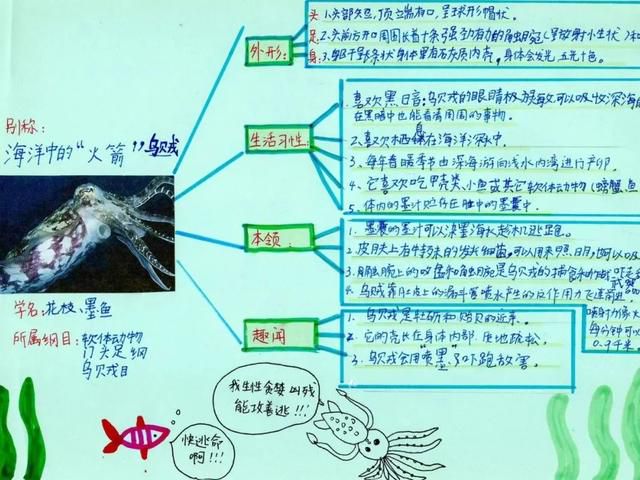 别称:
海洋中的“火箭”乌贼
学名:花枝、墨鱼
所属纲目:软体动物
门头足纲
乌贼目
外形:
头 1.头部较短,顶端有口,呈球形帽状。
足 2.头前方开口周围长着十条强劲有力的触腕
身: 身体里有石灰质内壳,身体会发光,五光十色。
生活习性:
1.喜欢黑暗:乌贼的眼睛极灵敏可以吸收深海
在黑暗中也能看清周围的事物。
2.喜欢栖息在海洋深水中.
3.每年春暖季节由深海游向浅水内湾进行产卵.
4.它喜欢吃甲壳类、小鱼或其它软体动物(螃蟹,鱼
5.体内的墨汁贮存在肚中的墨囊中.
本领:
1.墨囊的墨汁可以染墨海水趁机逃跑.
2.皮肤上有特殊的发光细菌,可以用来照明,也可以吸
3.触腕上的吸盘和触腕是乌贼的捕食和作战
武器
4.乌贼靠肚皮上的漏斗管喷水产生的反作用力飞速前进
每分钟可以
趣闻
1.乌贼是牡蛎和贻贝的近亲.
2.它的壳长在身体内部.质地疏松.
3.乌贼会用“喷墨”来吓跑敌害。
我生性贪婪,凶残
能攻善逃!!!
快逃命
啊!!!